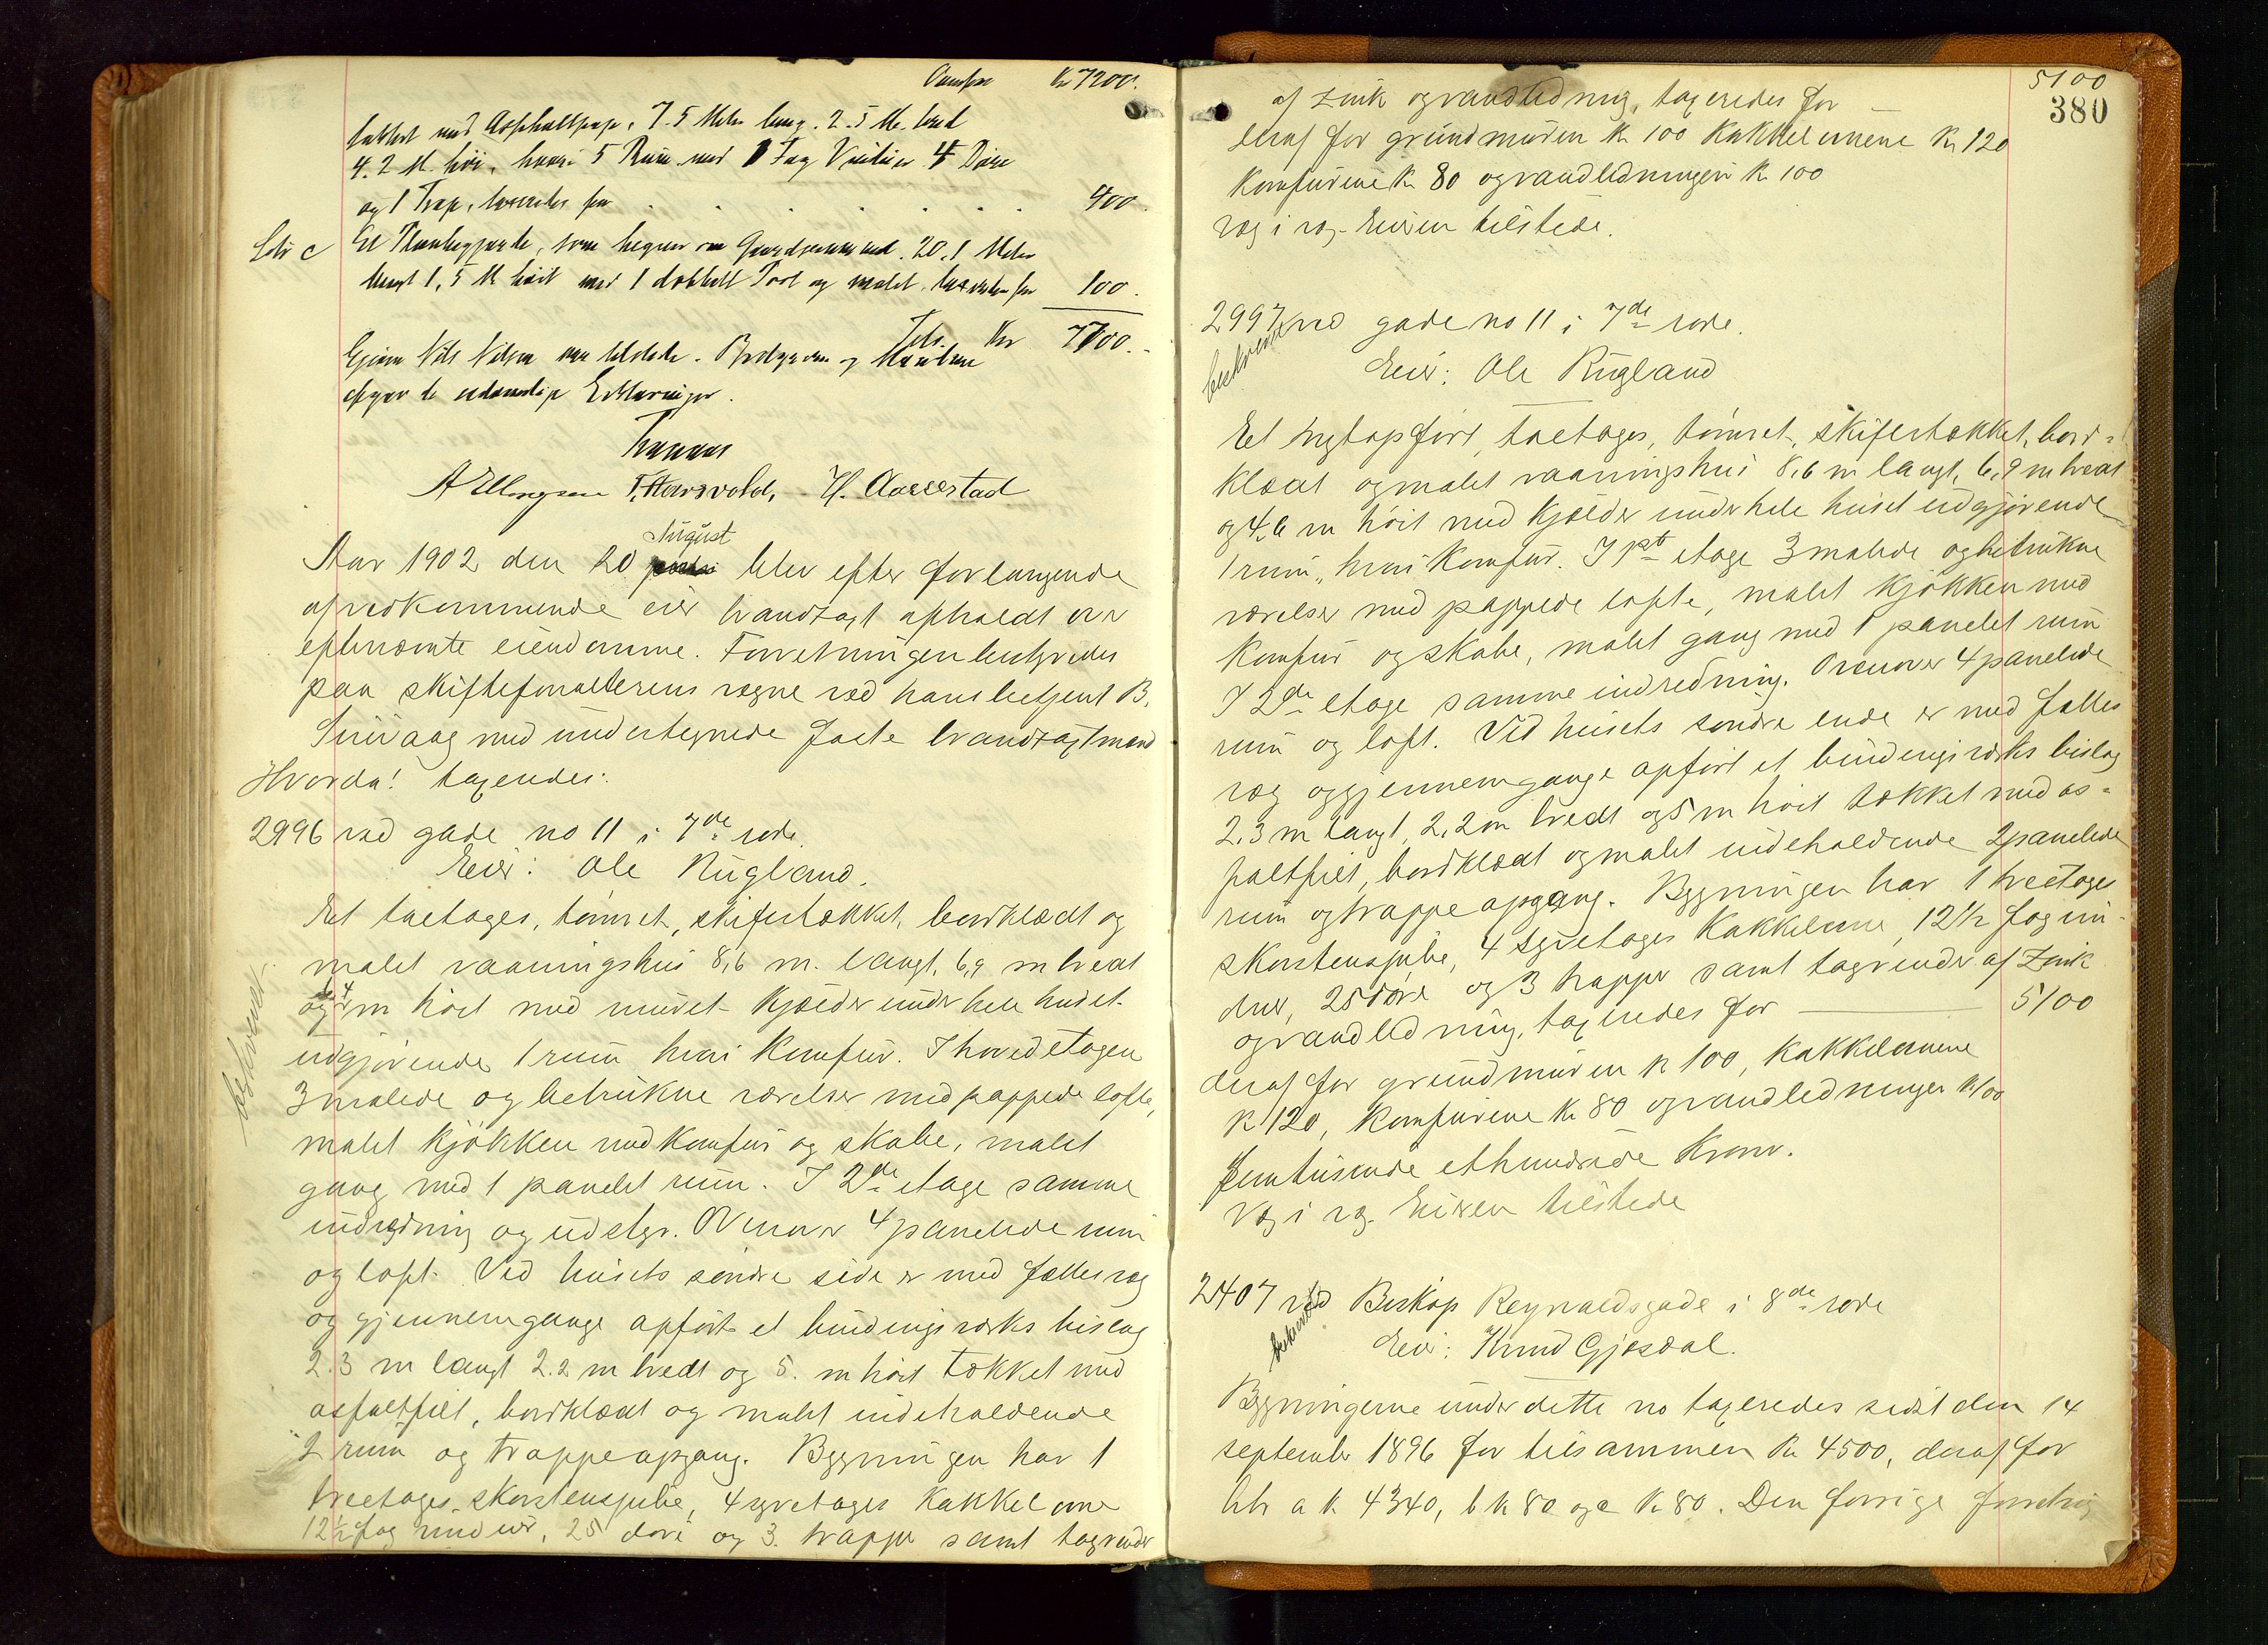 Kr 7200.
tækket med Asphaltpap, 7.5 Meter lang. 2.5 M. bred
4.2 M. høi, hvori 5 Rum med 1 Fag Vinduer 4 Døre
og 1 Trap, taxeredes for . . . . . . 400.
Litr c Et Plankegjærde, som hegner om Gaardsrummet. 20.1 Meter
langt 1,5 M høit med 1 dobbelt Port og malet. taxeredes for 100.
Tils. Kr 7700.-
Eieren Nils Nilsen var tilstede. Bestyreren og Mændene
afgav de sædvanlige Erklæringer.
A Ellingsen T. Hausvold, H. Aarrestad
August
Aar 1902 den 20 blev efter forlangende
af vedkommende eier brandtaxt afholdt over
efternævnte eiendomme. Forretningen bestyredes
paa skifteforvalterens vegne ved hans betjent B.
med undertegnede faste brandtaxtmænd
Hvorda! taxerdes:
2996 ved gade no 11 i 7de rode.
Eier: Ole Rugland.
Et toetages, tømret, skifertækket, bordklædt og
malet vaaningshus 8,6 m. langt, 6,9 m bredt
og 4 m høit med muret kjælder under hele huset
udgjørende 1 rum hvori komfur. I hovedetagen
3 malede og betrukne værelser med pappede lofte,
malet kjøkken med komfur og skabe, malet
gang med 1 panelet rum. I 2de etage samme
indredning og udstyr. Ovenover 4 panelede rum
og loft. Ved husets søndre side er med fælles væg
og gjennemgange opført et bindingsværks bislag
2.3 m langt 2.2 m bredt og 5. m høit tækket med
asfaltfilt, bordklædt og malet indeholdende
2 rum og trappeopgang. Bygningen har 1
treetages skorstenspibe, 4 syvetages kakkelovne
12 1/2 fag vinduer, 25 døre og 3 trapper samt tagrender
bekræftet
5100
380
af zink og vandledning, taxeredes for —
deraf for grundmuren k 100 kakkelovnene kr 120
komfurene kr 80 og vandledningen kr 100
væg i væg. Eieren tilstede.
2997 ved gade no 11 i 7de rode.
Eier: Ole Rugland
Et nytopført, toetages, tømret, skifertækket, bord=
klædt og malet vaaningshus 8,6 m langt, 6,9 m bredt
og 4.6 m høit med kjælder under hele huset udgjørende
1 rum, hvori komfur. I 1ste etage 3 malede og betrukne
værelser med pappede lofte, malet kjøkken med
komfur og skabe, malet gang med 1 panelet rum
I 2de etage samme indredning. Ovenover 4 panelede
rum og loft. Ved husets søndre ende er med fælles
væg og gjennemgange opført et bindingsværks bislag
2.3 m langt, 2,2 m bredt og 5 m høit tækket med as=
faltfilt, bordklædt og malet indeholdende 2 panelede
rum og trappeopgang. Bygningen har 1 treetages
skorstenspibe, 4 syvetages kakkelovne, 12 1/2 fag vin=
duer, 25 døre og 3 trapper samt tagrender af zink
og vandledning, taxeredes for — 5100
deraf for grundmuren k 100, kakkelovnene
k 120, komfurene kr 80 og vandledningen k 100
femtusende ethundrede kroner.
Væg i væg. Eieren tilstede
2407 ved Biskop Reynaldsgade i 8de rode
Eier: Knud Gjesdal.
Bygningerne under dette no taxeredes sidst den 14
september 1896 for tilsammen kr 4500, deraf for
litr a k 4340, b k 80 og c kr 80. Den forrige forretning